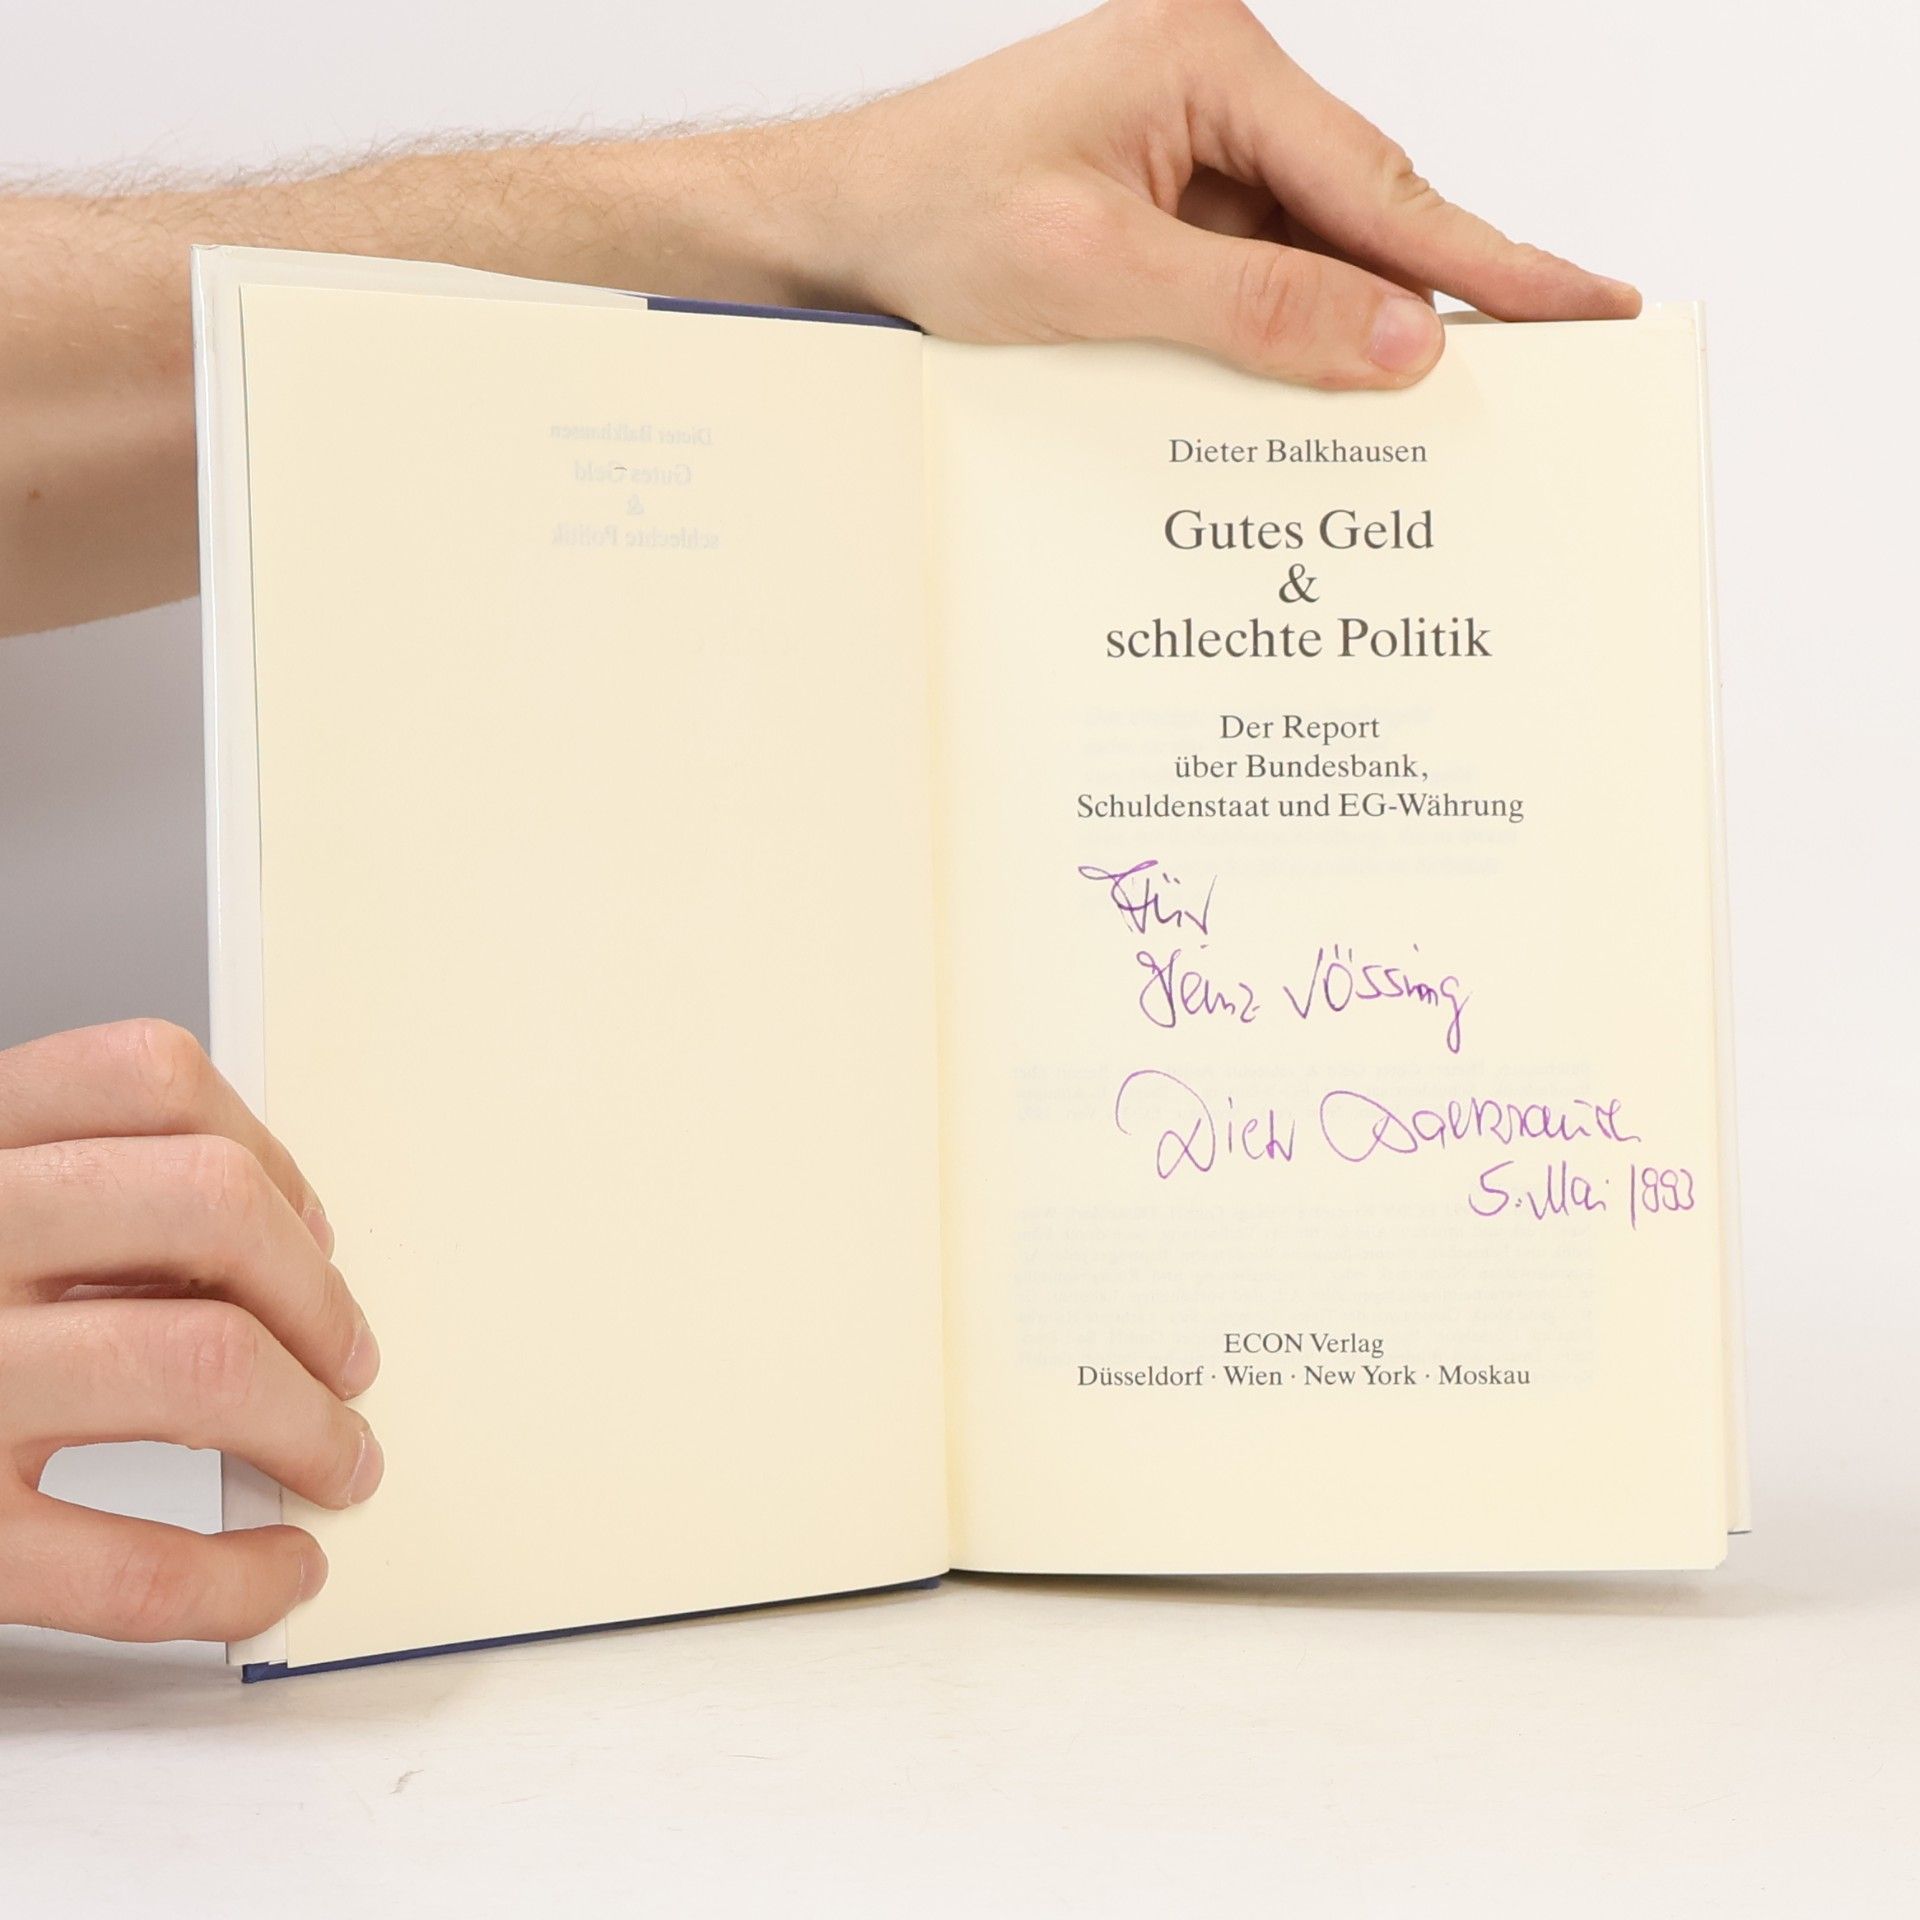 Dieter Balkhausen
Gutes Geld
&
schlechte Politik
Dieter Balkhausen
Gutes Geld
&
schlechte Politik
Der Report
über Bundesbank,
Schuldenstaat und EG-Währung
Für
Heinz Vössing
Dieter Balkhausen
5. Mai 1993
ECON Verlag
Düsseldorf · Wien · New York · Moskau